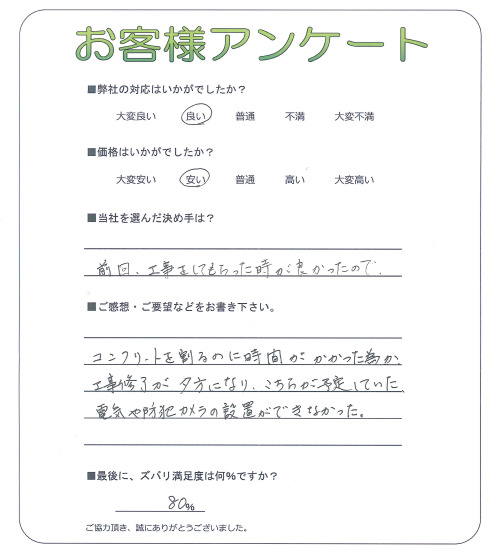 お客様アンケート
■弊社の対応はいかがでしたか？
大変良い 良い 普通 不満 大変不満
■価格はいかがでしたか？
大変安い 安い 普通 高い 大変高い
■当社を選んだ決め手は？
前回、工事をしてもらった時が良かったので、
■ご感想・ご要望などをお書き下さい。
コンクリートを割るのに時間がかかった為か、
工事修了が夕方になり、こちらが予定していた、
電気や防犯カメラの設置ができなかった。
■最後に、ズバリ満足度は何%ですか？
80%
ご協力頂き、誠にありがとうございました。